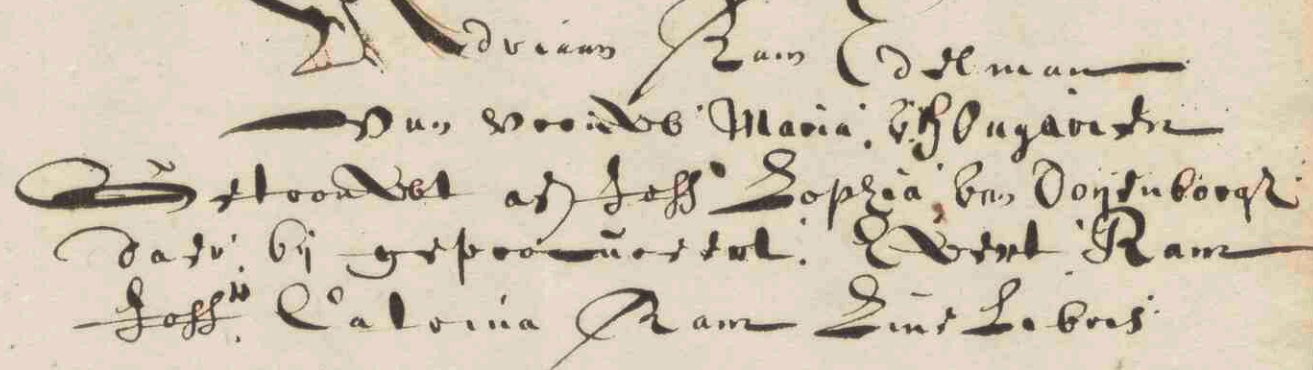 Adriaan Ram Edelman
van vrouwe Maria v. hongarien
Getrouwt aen Joff Sophia van Doyenborgh
daer bij geprocureert. Evert Ram
Joff Catrina Ram Sine Liberis